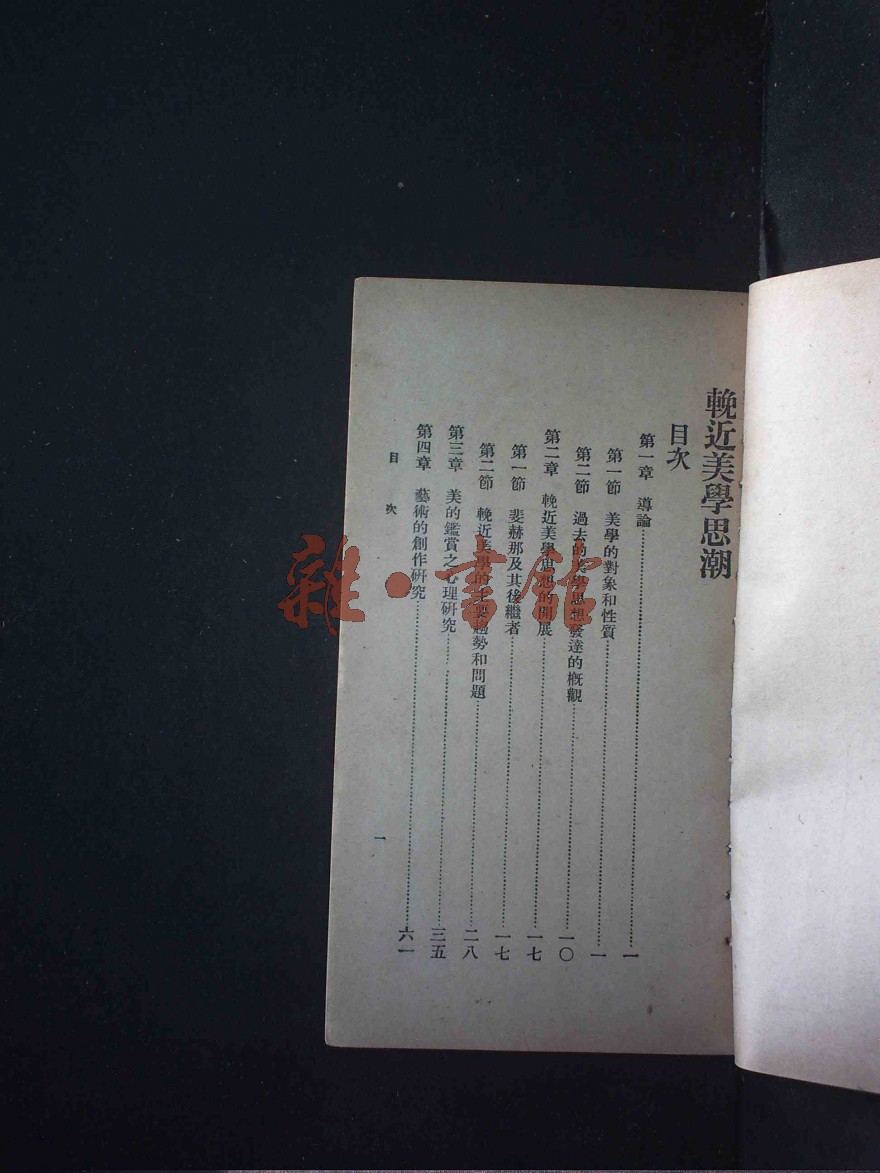 輓近美學思潮
目次
第一章 導論……一
第一節 美學的對象和性質……一
第二節 過去的美學思想發達的概觀……一〇
第二章 輓近美學思想的開展……一七
第一節 斐赫那及其後繼者……一七
第二節 輓近美學的主要趨勢和問題……二八
第三章 美的鑑賞之心理研究……三五
第四章 藝術的創作研究……六一
目次
一
雜·書館